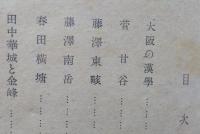 目次
大阪の漢學……
菅甘谷……
藤澤東畡……
藤澤南岳……
春田橫塘……
田中華城と金峰……